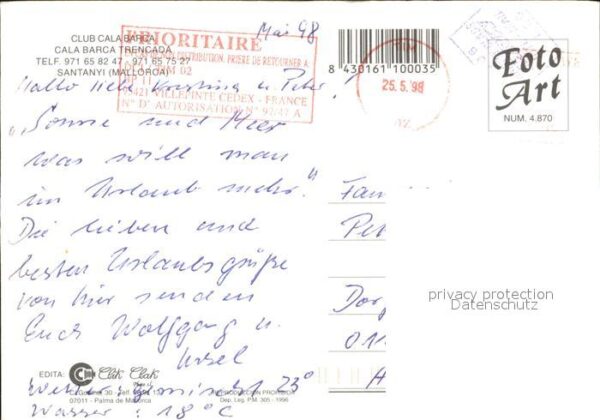 Mai 98
CLUB CALA BARCA
CALA BARCA TRENCADA
TELF. 971 65 82 47 - 971 65 75 27
SANTANYI (MALLORCA)
PRIORITAIRE
DISTRIBUTION. PRIERE DE RETOURNER A:
VILLEPINTE CEDEX - FRANCE
N° D'AUTORISATION N° 92/42 A
8 430161 100035
25.5.98
Foto
Art
NUM. 4.870
Hallo liebe Kristina u. Peter!
"Sonne und Meer
was will man
im Urlaub mehr."
Die lieben und
besten Urlaubsgrüße
von hier senden
Euch Wolfgang u.
Ursel
Wetter: gemischt 23°
Wasser: 18°C
Fam
Pet
Dor
011
A
privacy protection
Datenschutz
EDITA:
Clik Clak
07011 - Palma de Mallorca
REPRODUCCION PROHIBIDA
Dep. Leg. PM. 305 - 1996